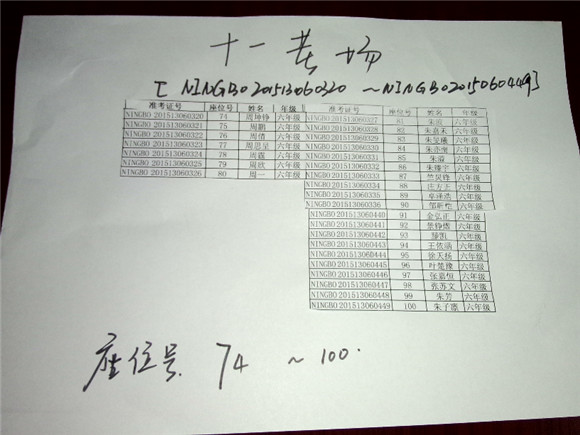 十一考场
[ NINGBO 201513060320 ～NINGBO2015060449]
准考证号 座位号 姓名 年级
NINGBO 201513060320 74 周坤铮 六年级
NINGBO 201513060321 75 周鹏 六年级
NINGBO 201513060322 76 周倩 六年级
NINGBO 201513060323 77 六年级
NINGBO 201513060324 78 周霆 六年级
NINGBO 201513060325 79 周欣 六年级
NINGBO 201513060326 80 周一 六年级
准考证号 座位号 姓名 年级
NINGBO 201513060327 81 六年级
NINGBO 201513060328 82 朱嘉禾 六年级
NINGBO 201513060329 83 六年级
NINGBO 201513060330 84 六年级
NINGBO 201513060331 85 六年级
NINGBO 201513060332 86 六年级
NINGBO 201513060333 87 六年级
NINGBO 201513060334 88 庄方正 六年级
NINGBO 201513060335 89 卓泽浩 六年级
NINGBO 201513060336 90 六年级
NINGBO 201513060440 91 金弘正 六年级
NINGBO 201513060441 92 六年级
NINGBO 201513060442 93 六年级
NINGBO 201513060443 94 王依涵 六年级
NINGBO 201513060444 95 徐天扬 六年级
NINGBO 201513060445 96 叶楚豫 六年级
NINGBO 201513060446 97 张嘉恒 六年级
NINGBO 201513060447 98 张苏文 六年级
NINGBO 201513060448 99 朱芳 六年级
NINGBO 201513060449 100 六年级
座位号 74 ～100.